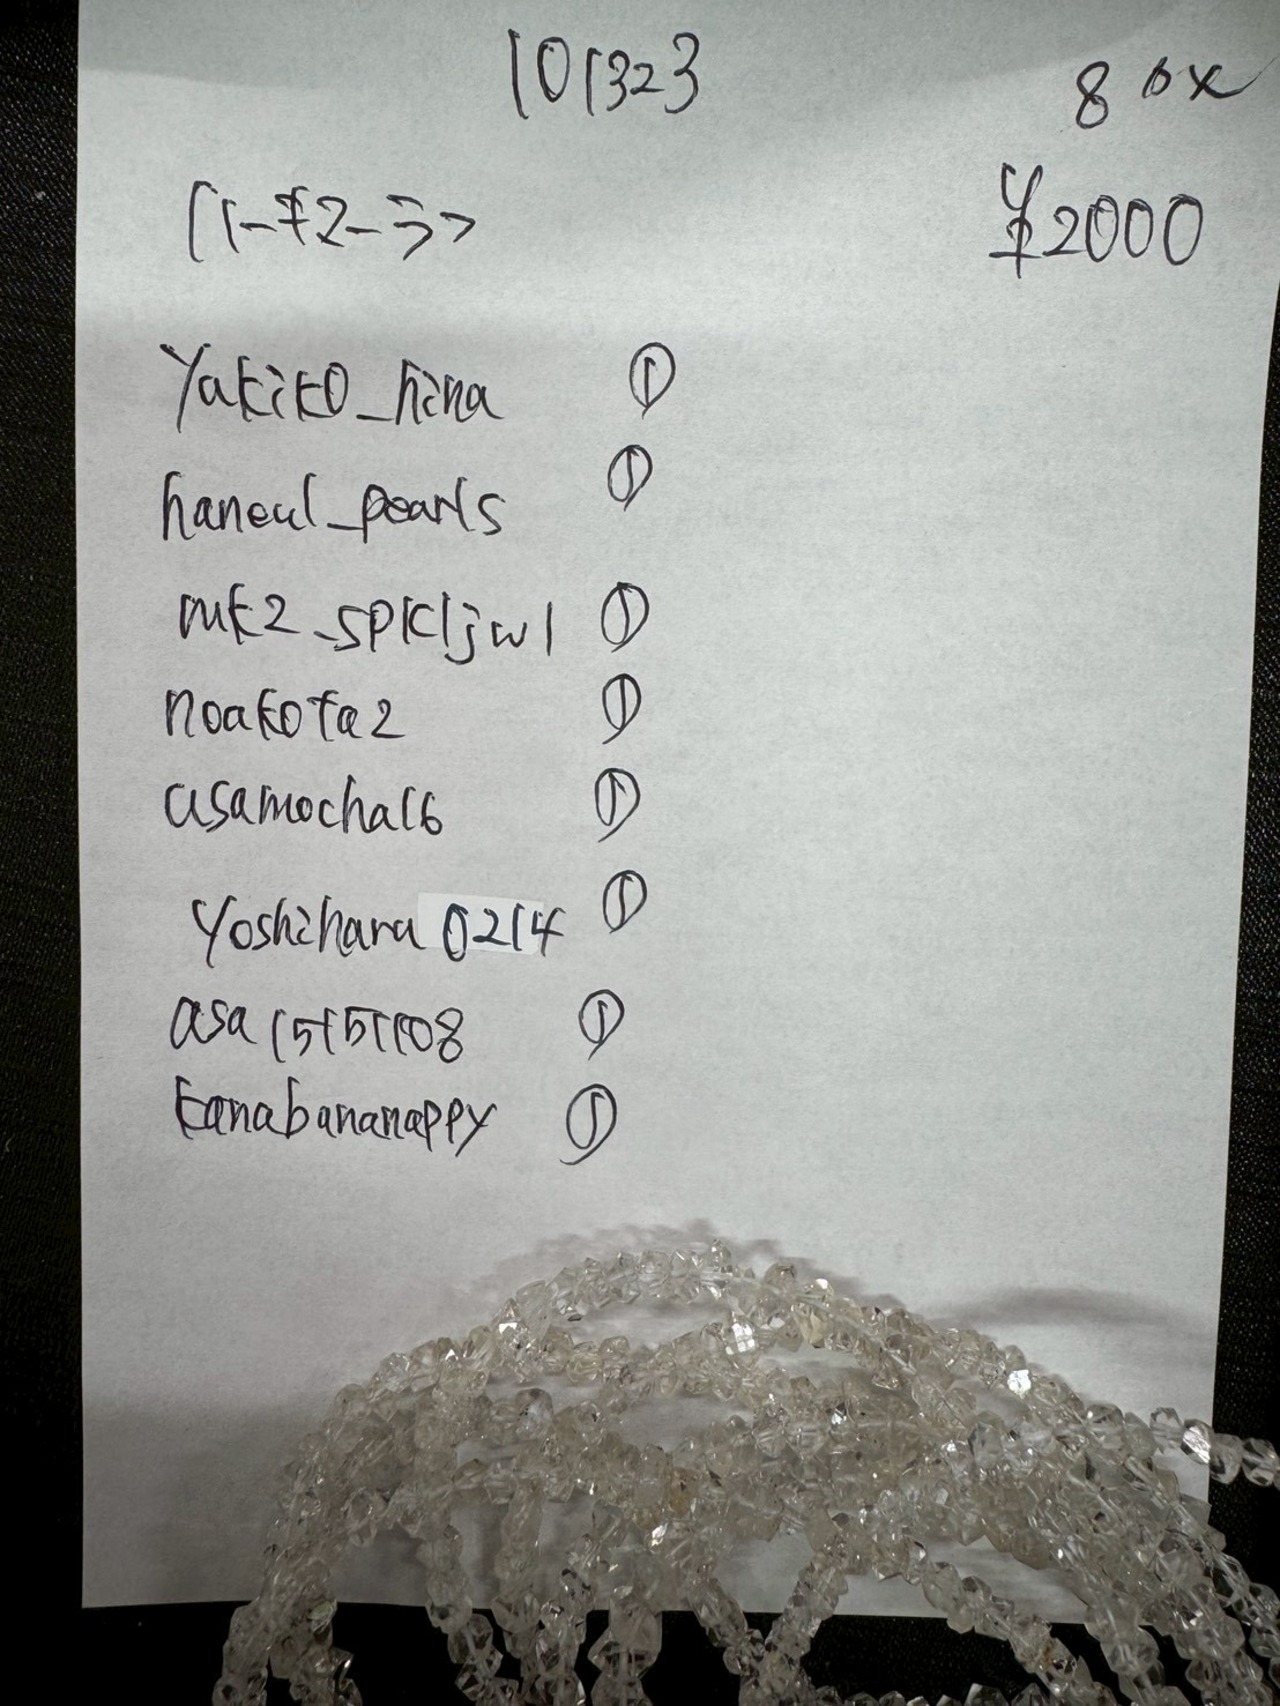 101323
80x
ハーキマー
¥2000
Yakiko_hina ①
haneul_pearls ①
mk2_spkljwl ①
noakota2 ①
asamocha16 ①
Yoshihara0214 ①
asa15151108 ①
kanabananappy ①